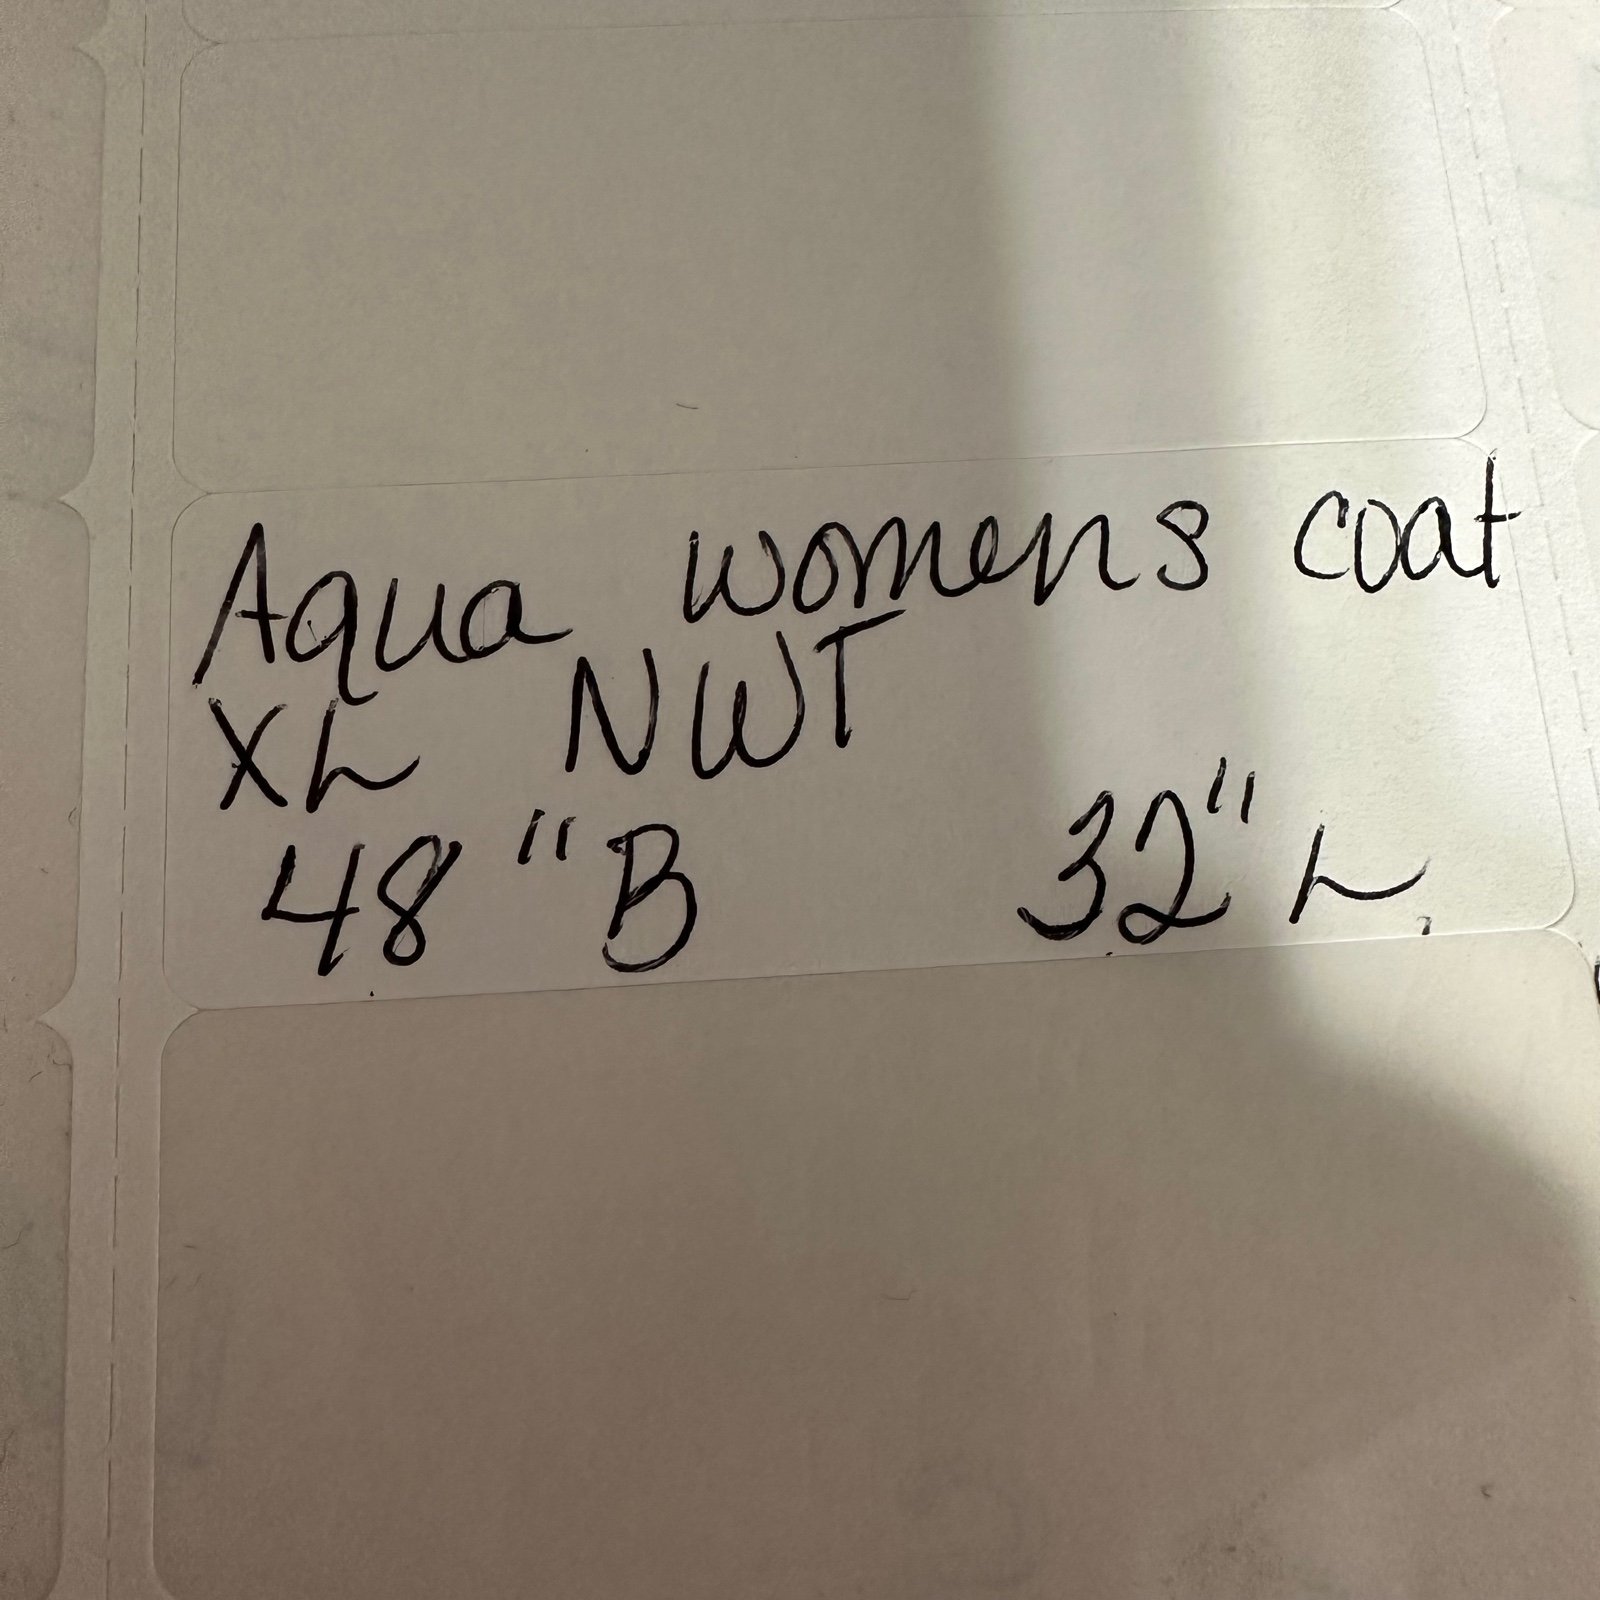 Aqua womens coat
XL NWT
48" B 32" L